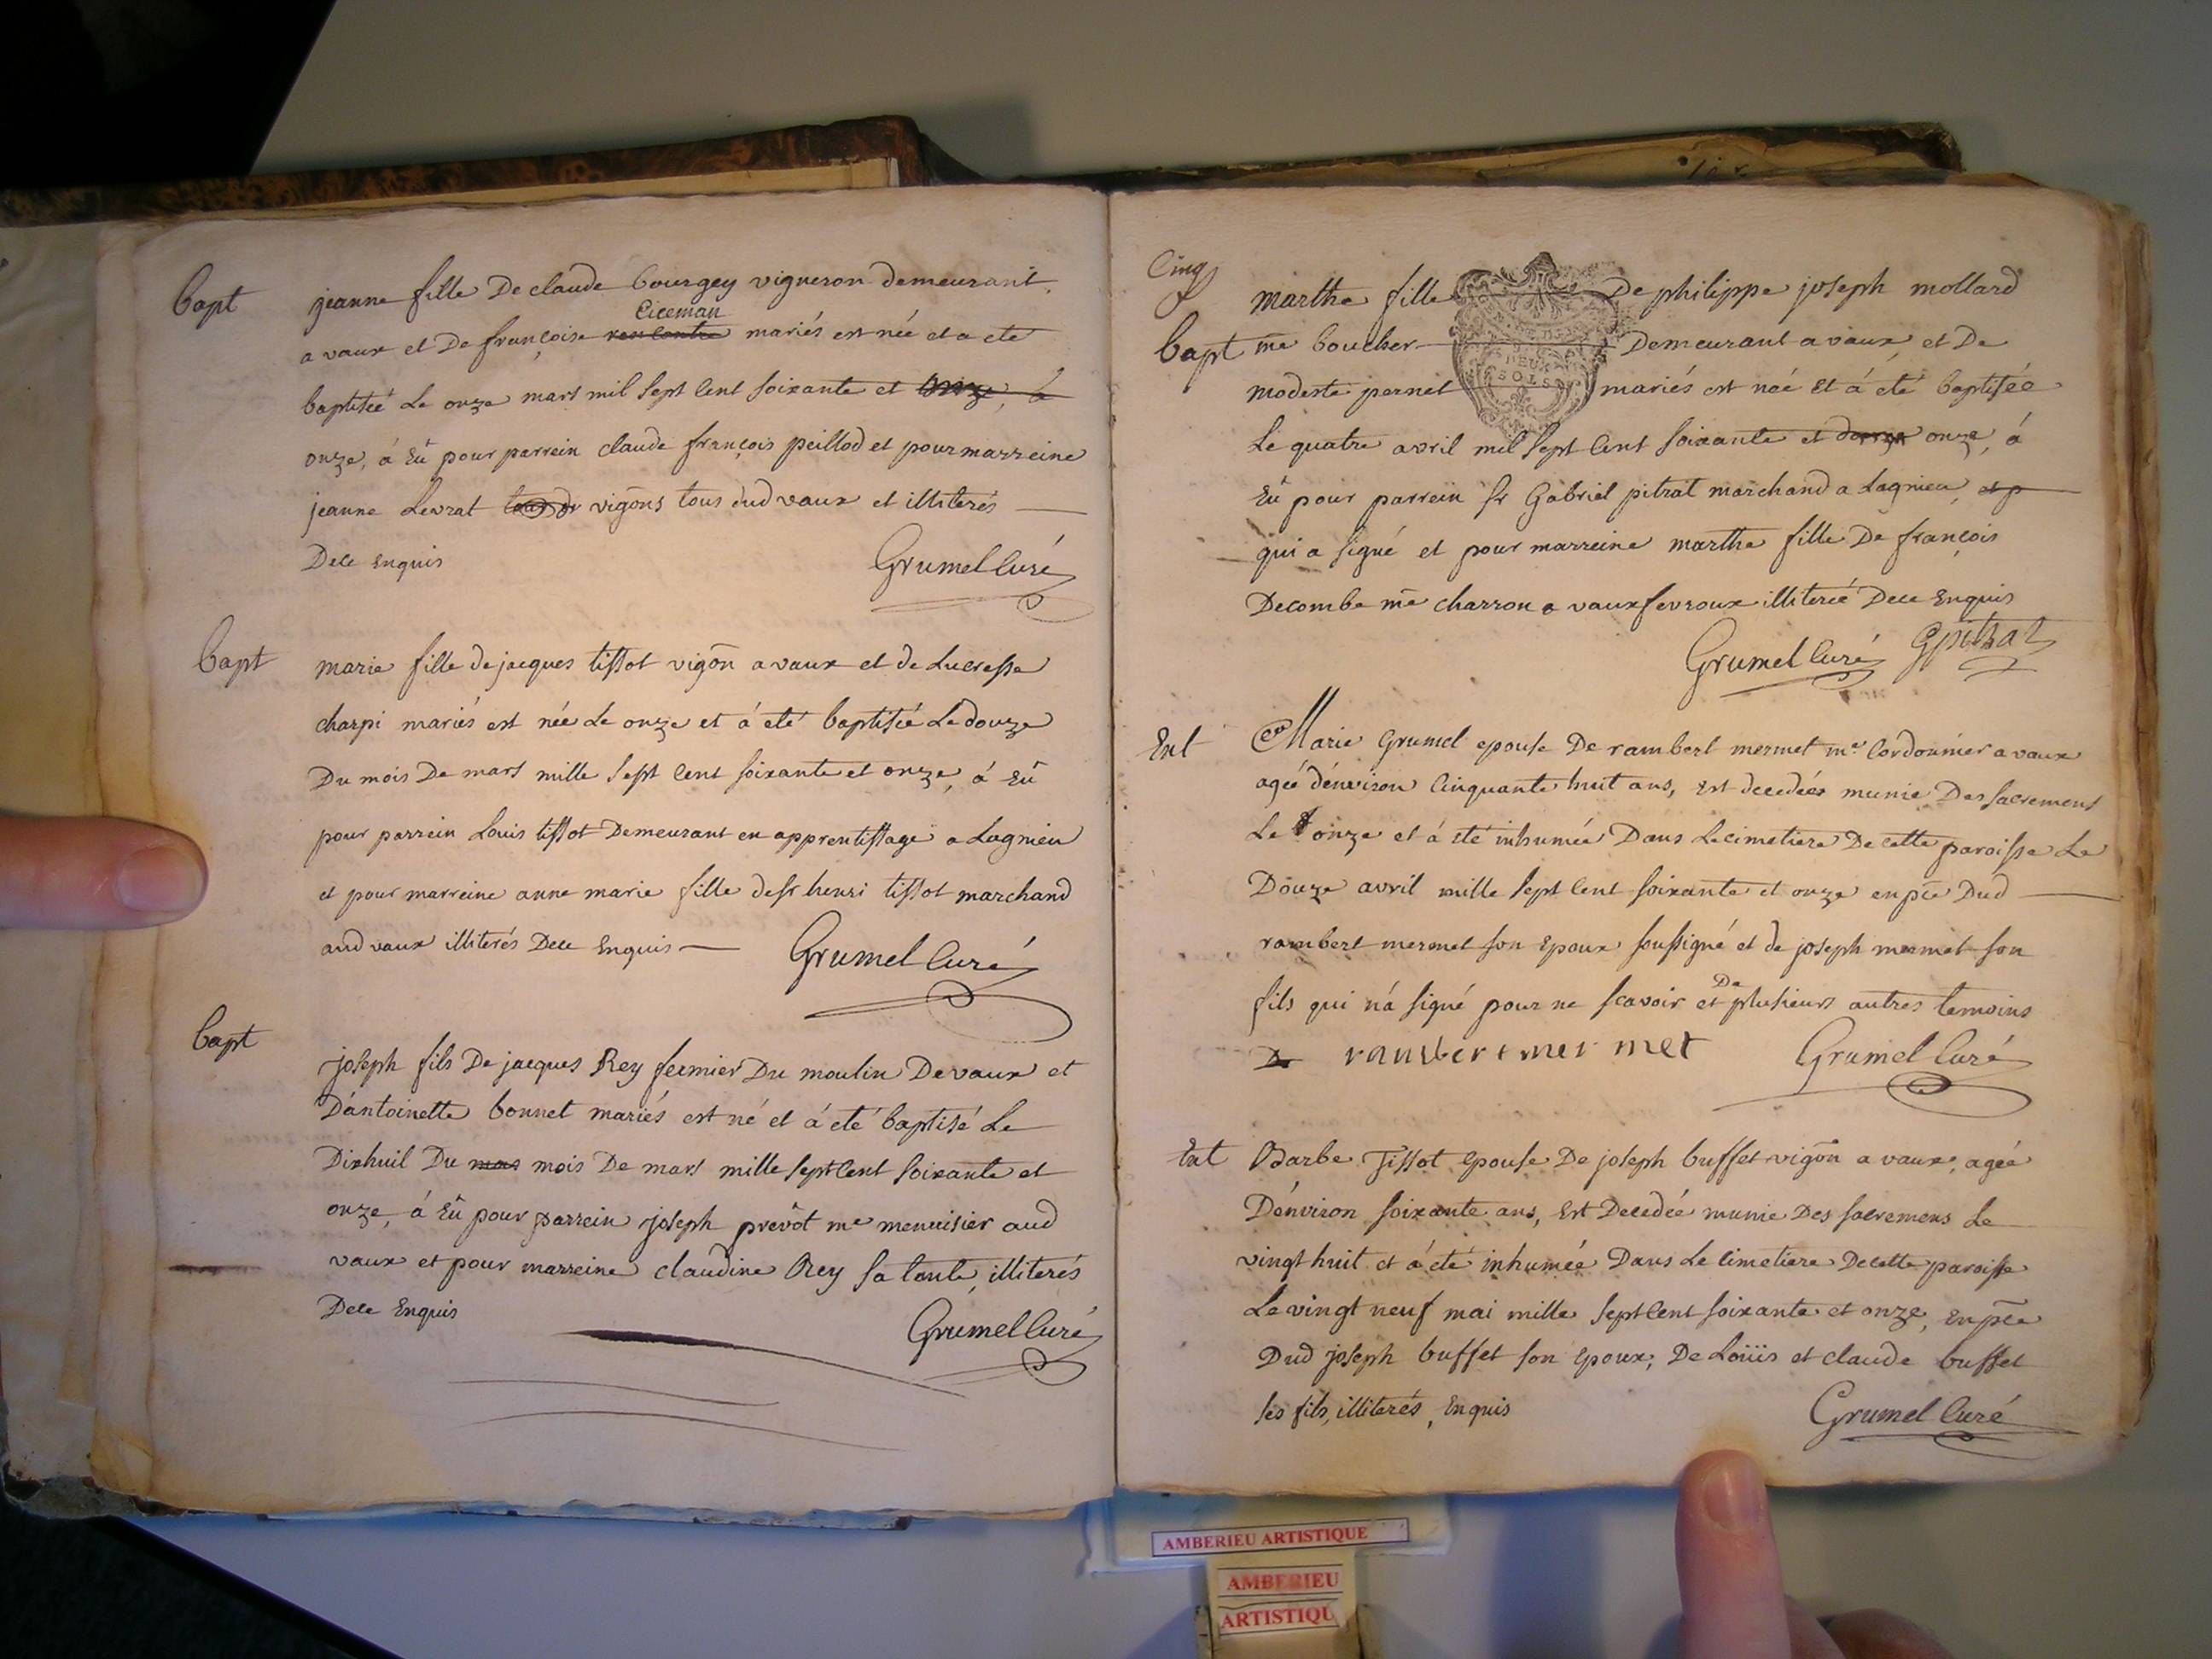 Bapt
jeanne fille De claude bourgey vigneron demeurant
Ciceman
a vaux et De françoise rencontre mariés est née et a ete
baptisée Le onze mars mil sept Cent soixante et onze, à
onze, á Eû pour parrein claude françois peillod et pour marreine
jeanne Levrat tous dud vigons tous dud vaux et illiterés
Dece Enquis
Grumel Curé
Bapt
marie fille de jacques tissot vigon a vaux et de Lucresse
charpi mariés est née Le onze et á eté baptisée Le douze
Du mois De mars mille sept Cent soixante et onze, á Eû
pour parrein Louis tissot Demeurant en apprentissage a Lagnieu
et pour marreine anne marie fille de sr henri tissot marchand
aud vaux illiterés Dece Enquis
Grumel Curé
Bapt
joseph fils De jacques Rey fermier Du moulin De vaux et
D'antoinette bonnet mariés est né et á eté baptisé Le
Dixhuit Du mars mois De mars mille sept Cent soixante et
onze, á Eû pour parrein joseph prevôt me menuisier aud
vaux et pour marreine claudine Rey sa tante, illiterés
Dece Enquis
Grumel Curé
Cinq
Bapt
marthe fille De philippe joseph mollard
me boucher Demeurant a vaux, et De
modeste pernet mariés est née Et á eté baptisée
DEUX
SOLS
Le quatre avril mil sept Cent soixante et onze, á
Eû pour parrein sr Gabriel pitrat marchand a Lagnieu, et p
qui a signé et pour marreine marthe fille De françois
Decombe me charron a vauxfevroux illiterée Dece Enquis
Grumel Curé Gpitrat
Ent
Marie Grumel epouse De rambert mermet me Cordonnier a vaux
agée d'environ Cinquante huit ans, Est decedée munie Des sacremens
Le onze et á eté inhumée Dans Le cimetiere De cette paroisse Le
Douze avril mille sept Cent soixante et onze en pce Dud
rambert mermet son Epoux soussigné et de joseph mermet son
De
fils qui n'a signé pour ne scavoir et plusieurs autres temoins
De rambert mermet
Grumel Curé
Ent
Barbe Tissot epouse De joseph buffet vigon a vaux, agée
D'environ soixante ans, Est Decedée munie Des sacremens Le
vingt huit et á eté inhumée Dans Le Cimetiere De cette paroisse
Le vingt neuf mai mille sept Cent soixante et onze, En pce
Dud joseph buffet son Epoux, De Loüis et claude buffet
ses fils, illiterés, Enquis
Grumel Curé
AMBERIEU ARTISTIQUE
AMBERIEU
ARTISTIQU